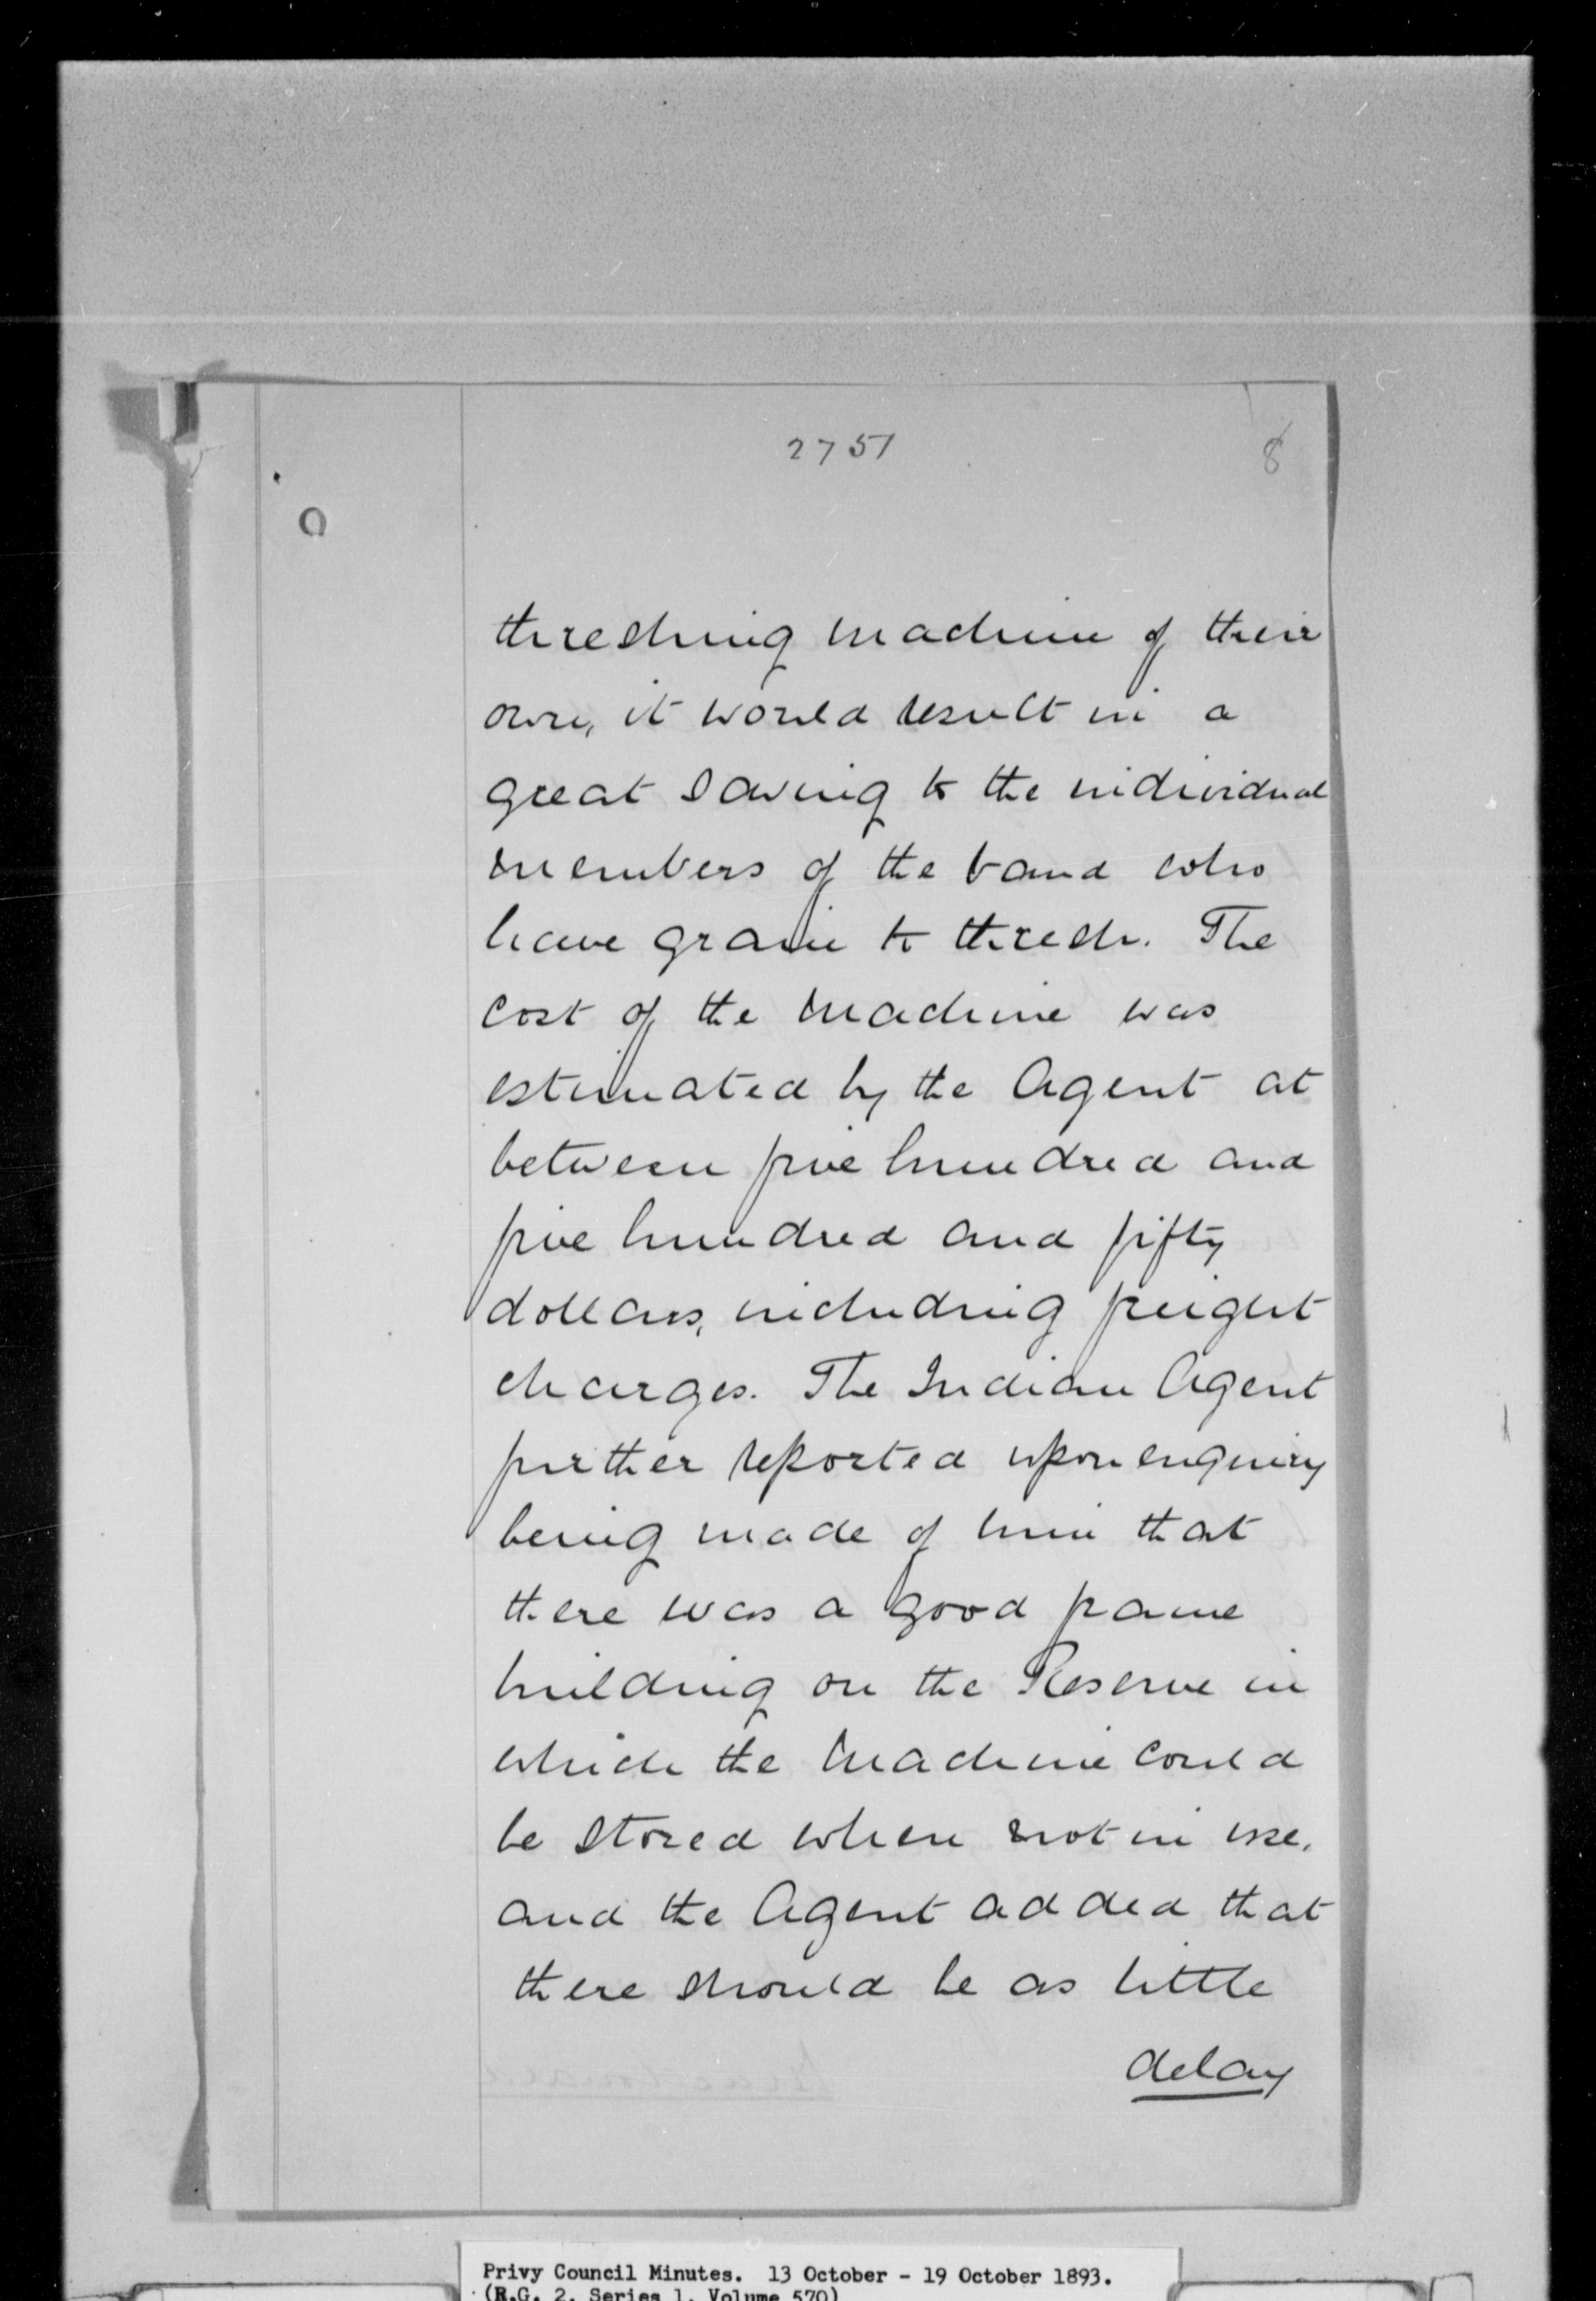 2751
8
threshing machine of their
own, it would result in a
great saving to the individual
members of the band who
have grain to thresh. The
cost of the machine was
estimated by the Agent at
between five hundred and
five hundred and fifty
dollars, including freight
charges. The Indian Agent
further reported upon enquiry
being made of him that
there was a good frame
building on the Reserve in
which the machine could
be stored when not in use,
and the Agent added that
there should be as little
delay
Privy Council Minutes. 13 October - 19 October 1893.
(R.G. 2, Series 1, Volume 570)